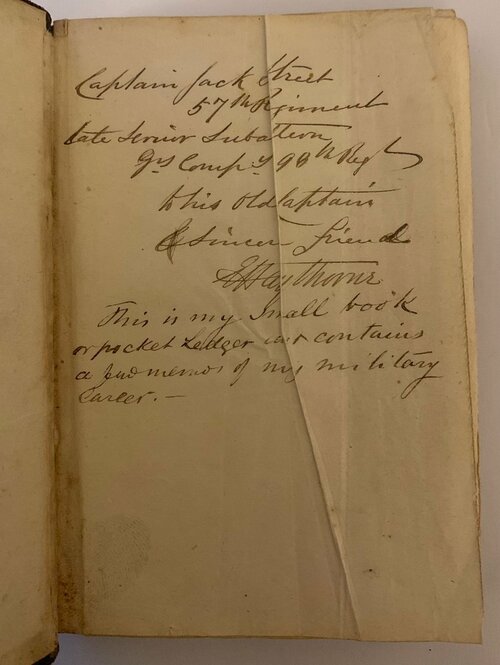 Captain Jack Street
57th Regiment
late Senior Subaltern
Grs Compy 98th Regt
to his old Captain
& sincere friend
E Haythorne
This is my small book
or pocket Ledger and contains
a few memos of my military
Career. —